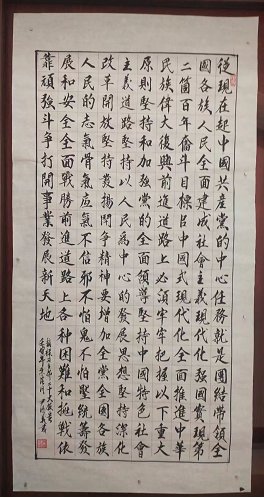 從現在起中國共產黨的中心任務就是團結帶領全
國各族人民全面建成社會主義現代化強國實現第
二箇百年奮斗目標以中國式現代化全面推進中華
民族偉大復興前進道路上必須牢牢把握以下重大
原則堅持和加強黨的全面領導堅持中國特色社會
主義道路堅持以人民為中心的發展思想堅持深化
改革開放堅持發揚鬥爭精神要增加全黨全國各族
人民的志氣骨氣底氣不信邪不怕鬼不怕壓統籌發
展和安全全面戰勝前進道路上各種困難和挑戰依
靠頑強斗爭打開事業發展新天地